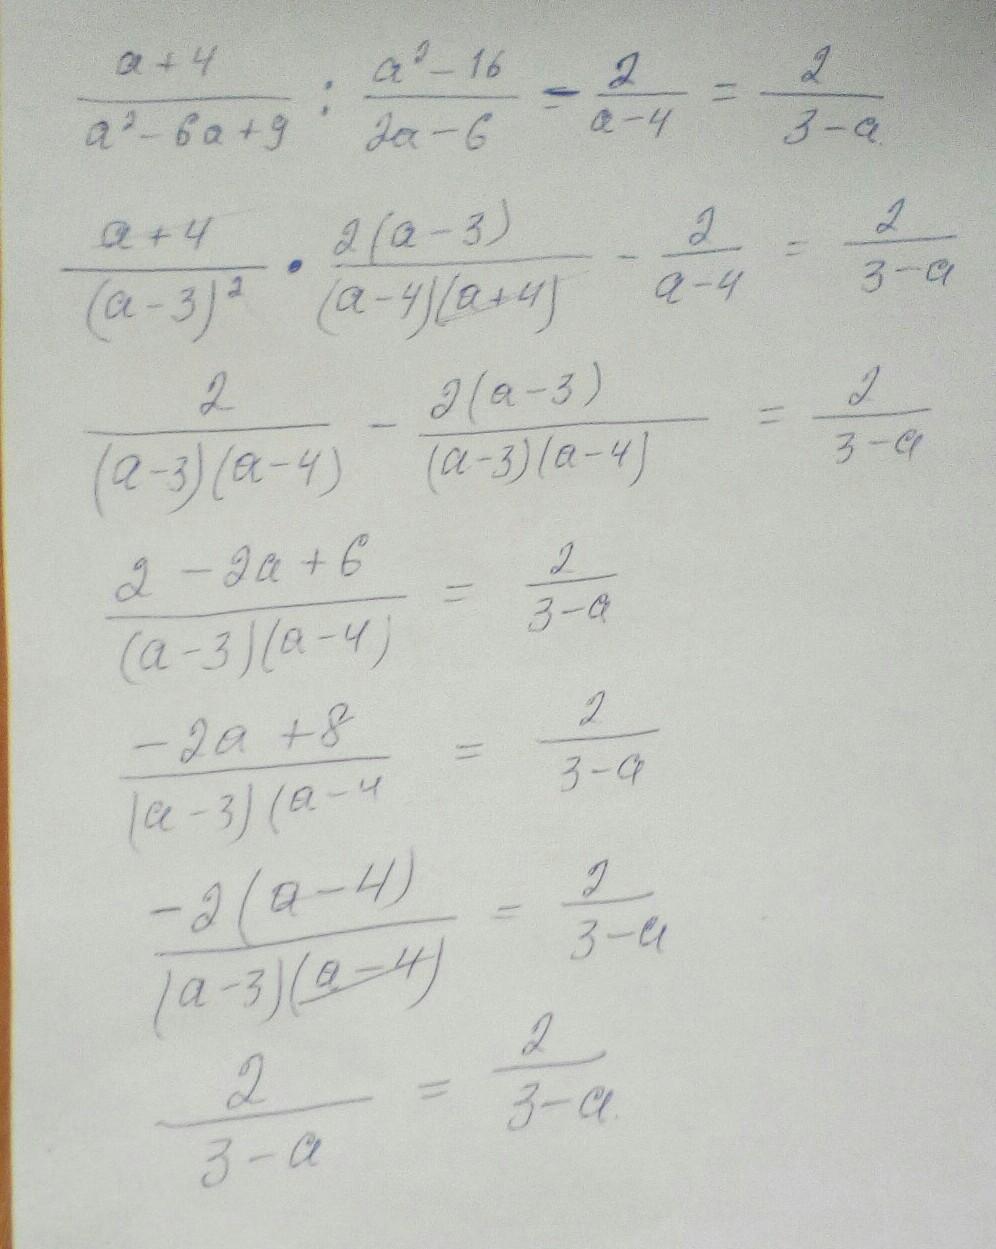 (a+4)/(a²-6a+9) : (a²-16)/(2a-6) - 2/(a-4) = 2/(3-a)
(a+4)/(a-3)² · 2(a-3)/(a-4)(a+4) - 2/(a-4) = 2/(3-a)
2/(a-3)(a-4) - 2(a-3)/(a-3)(a-4) = 2/(3-a)
(2-2a+6)/(a-3)(a-4) = 2/(3-a)
(-2a+8)/(a-3)(a-4 = 2/(3-a)
-2(a-4)/(a-3)(a-4) = 2/(3-a)
2/(3-a) = 2/(3-a)